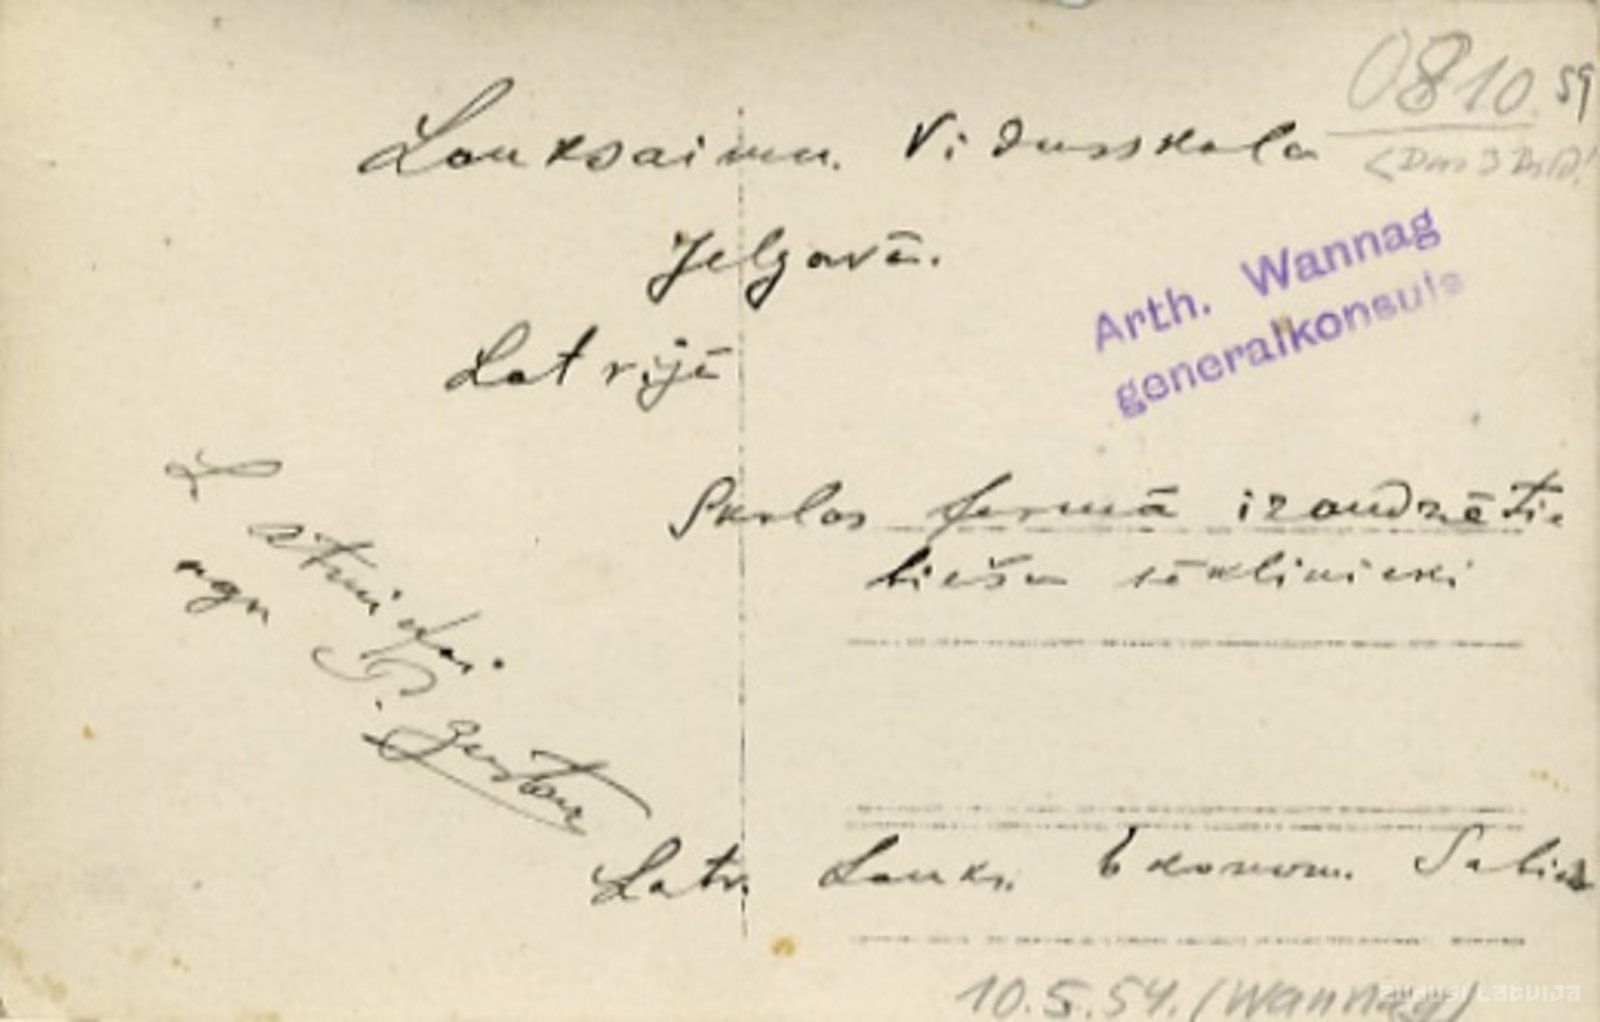 0810 59
Lauksaimn. Vidusskola
Jelgavā.
Latvijā
Arth. Wannag
generalkonsuls
Skolas fermā izaudzētie
biešu sēklinieki
L
atmiņai
P.
Latv. Lauks. Ekonom. Sabied
10.5.54. (Wannag)
zudusi Latvija